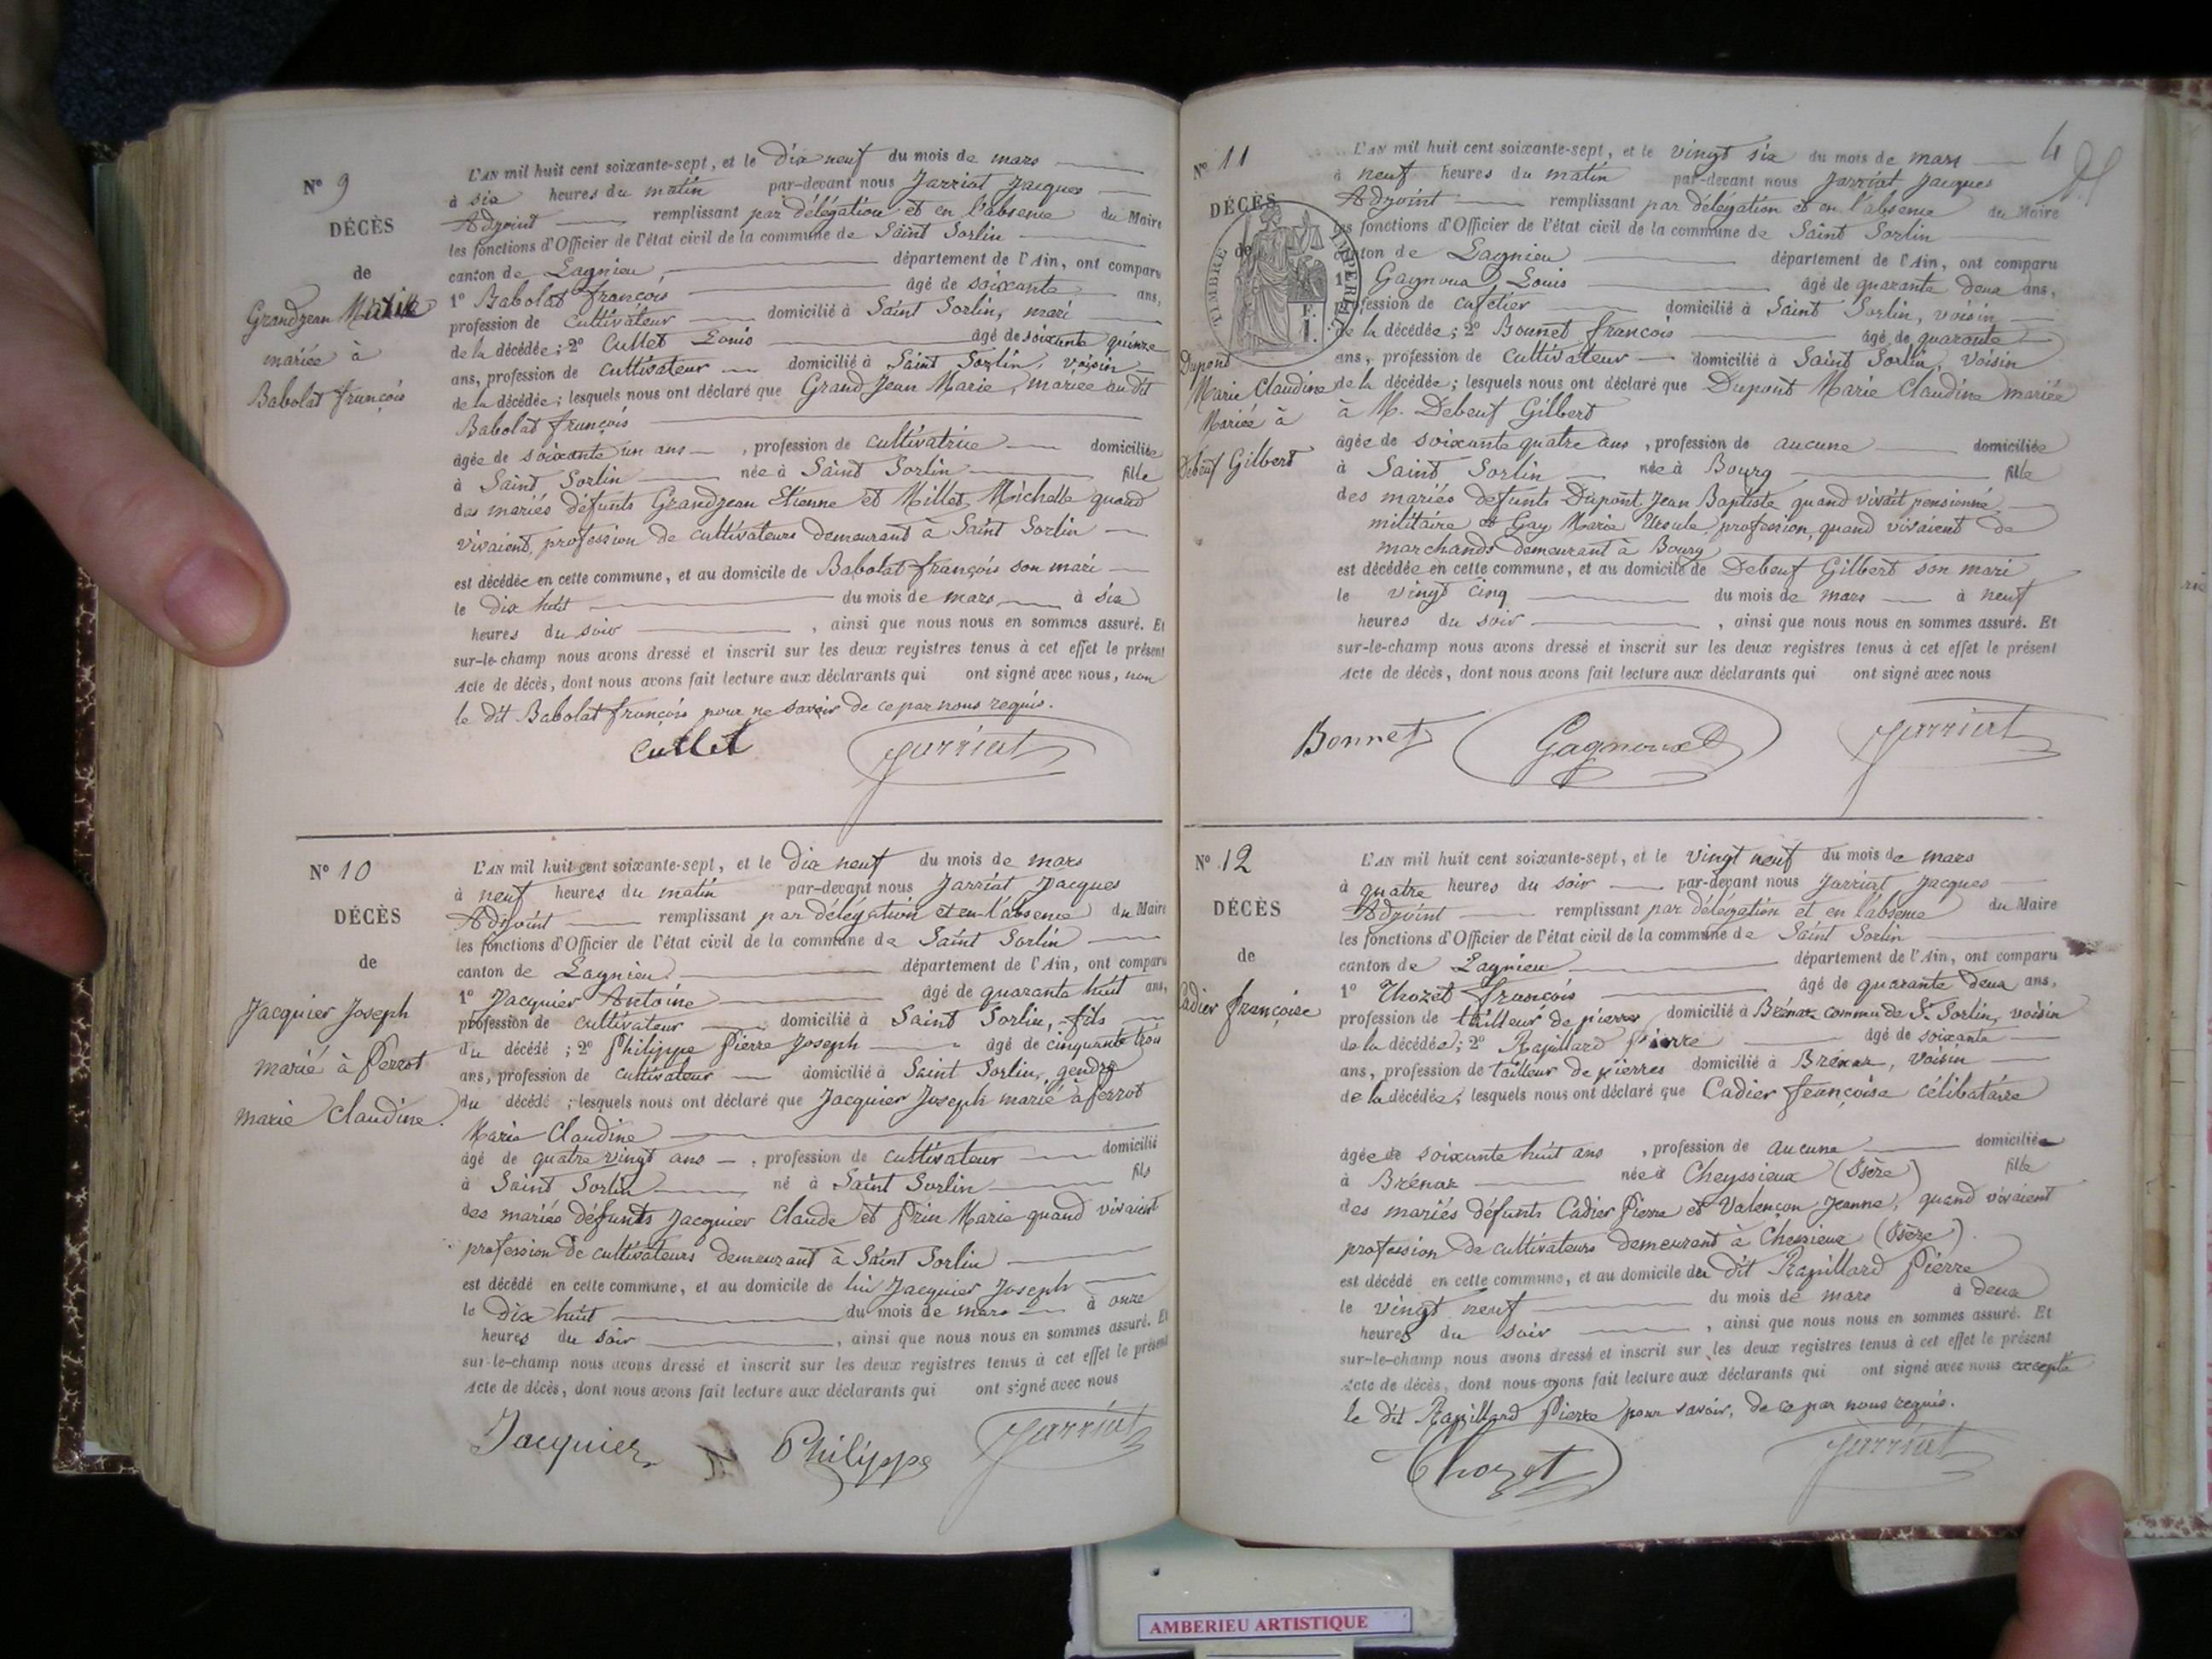 N° 9
DÉCÈS
de
Grandjean Marie
mariée à
Babolat françois
L'AN mil huit cent soixante-sept, et le Dix neuf du mois de mars
à six heures du matin par-devant nous Jarriat Jacques
Adjoint remplissant par délégation et en l'absence du Maire
les fonctions d'Officier de l'état civil de la commune de Saint Sorlin
canton de Lagnieu, département de l'Ain, ont comparu
1° Babolat françois âgé de soixante ans,
profession de cultivateur domicilié à Saint Sorlin, mari
de la décédée; 2° Cullet Louis âgé de soixante quinze
ans, profession de cultivateur domicilié à Saint Sorlin, voisin
de la décédée; lesquels nous ont déclaré que Grand Jean Marie, mariée au dit
Babolat françois
âgée de soixante un ans, profession de cultivatrice domiciliée
à Saint Sorlin née à Saint Sorlin fille
des mariés défunts Grandjean Etienne et Millet Michelle quand
vivaient, profession de cultivateurs demeurant à Saint Sorlin
est décédée en cette commune, et au domicile de Babolat françois son mari
le Dix huit du mois de mars à six
heures du soir, ainsi que nous nous en sommes assuré. Et
sur-le-champ nous avons dressé et inscrit sur les deux registres tenus à cet effet le présent
Acte de décès, dont nous avons fait lecture aux déclarants qui ont signé avec nous, non
le dit Babolat françois pour ne savoir de ce par nous requis.
Cullet Jarriat
N° 10
DÉCÈS
de
Jacquier Joseph
marié à Perrot
marie Claudine.
L'AN mil huit cent soixante-sept, et le Dix neuf du mois de mars
à neuf heures du matin par-devant nous Jarriat Jacques
Adjoint remplissant par délégation et en l'absence du Maire
les fonctions d'Officier de l'état civil de la commune de Saint Sorlin
canton de Lagnieu département de l'Ain, ont comparu
1° Jacquier Antoine âgé de quarante huit ans,
profession de cultivateur domicilié à Saint Sorlin, fils
du décédé; 2° Philippe Pierre Joseph âgé de cinquante trois
ans, profession de cultivateur domicilié à Saint Sorlin, gendre
du décédé; lesquels nous ont déclaré que Jacquier Joseph marié à Perrot
Marie Claudine
âgé de quatre vingt ans, profession de cultivateur domicilié
à Saint Sorlin né à Saint Sorlin fils
des mariés défunts Jacquier Claude et Prin Marie quand vivaient
profession de cultivateurs demeurant à Saint Sorlin
est décédé en cette commune, et au domicile de lui Jacquier Joseph
le Dix huit du mois de mars à onze
heures du soir, ainsi que nous nous en sommes assuré. Et
sur-le-champ nous avons dressé et inscrit sur les deux registres tenus à cet effet le présent
Acte de décès, dont nous avons fait lecture aux déclarants qui ont signé avec nous
Jacquier Philippe Jarriat
4
N° 11
DÉCÈS
de
TIMBRE IMPERIAL
Dupont
Marie Claudine
Mariée à
Debeuf Gilbert
L'AN mil huit cent soixante-sept, et le vingt six du mois de mars
à neuf heures du matin par-devant nous Jarriat Jacques
Adjoint remplissant par délégation et en l'absence du Maire
les fonctions d'Officier de l'état civil de la commune de Saint Sorlin
canton de Lagnieu département de l'Ain, ont comparu
1° Gagnoux Louis âgé de quarante deux ans,
profession de cafetier domicilié à Saint Sorlin, voisin
de la décédée; 2° Bonnet françois âgé de quarante
ans, profession de cultivateur domicilié à Saint Sorlin, voisin
de la décédée; lesquels nous ont déclaré que Dupont Marie Claudine mariée
à M. Debeuf Gilbert
âgée de soixante quatre ans, profession de aucune domiciliée
à Saint Sorlin née à Bourg fille
des mariés défunts Dupont Jean Baptiste quand vivait pensionné
militaire et Gay Marie Ursule profession, quand vivaient de
marchands demeurant à Bourg
est décédée en cette commune, et au domicile de Debeuf Gilbert son mari
le vingt cinq du mois de mars à neuf
heures du soir, ainsi que nous nous en sommes assuré. Et
sur-le-champ nous avons dressé et inscrit sur les deux registres tenus à cet effet le présent
Acte de décès, dont nous avons fait lecture aux déclarants qui ont signé avec nous
Bonnet Gagnoux Jarriat
N° 12
DÉCÈS
de
Cadier françoise
L'AN mil huit cent soixante-sept, et le vingt neuf du mois de mars
à quatre heures du soir par-devant nous Jarriat Jacques
Adjoint remplissant par délégation et en l'absence du Maire
les fonctions d'Officier de l'état civil de la commune de Saint Sorlin
canton de Lagnieu département de l'Ain, ont comparu
1° Thozet françois âgé de quarante deux ans,
profession de tailleur de pierres domicilié à Brénaz commu de St Sorlin, voisin
de la décédée; 2° Rapillard Pierre âgé de soixante
ans, profession de tailleur de pierres domicilié à Brénaz, voisin
de la décédée; lesquels nous ont déclaré que Cadier françoise célibataire
âgée de soixante huit ans, profession de aucune domiciliée
à Brénaz née à Cheyssieux (Isère) fille
des mariés défunts Cadier Pierre et Valençon Jeanne, quand vivaient
profession de cultivateurs demeurant à Chessieux (Isère).
est décédé en cette commune, et au domicile du dit Rapillard Pierre
le vingt neuf du mois de mars à deux
heures du soir, ainsi que nous nous en sommes assuré. Et
sur-le-champ nous avons dressé et inscrit sur les deux registres tenus à cet effet le présent
Acte de décès, dont nous avons fait lecture aux déclarants qui ont signé avec nous excepté
le dit Rapillard Pierre pour savoir, de ce par nous requis.
Thozet Jarriat
AMBERIEU ARTISTIQUE